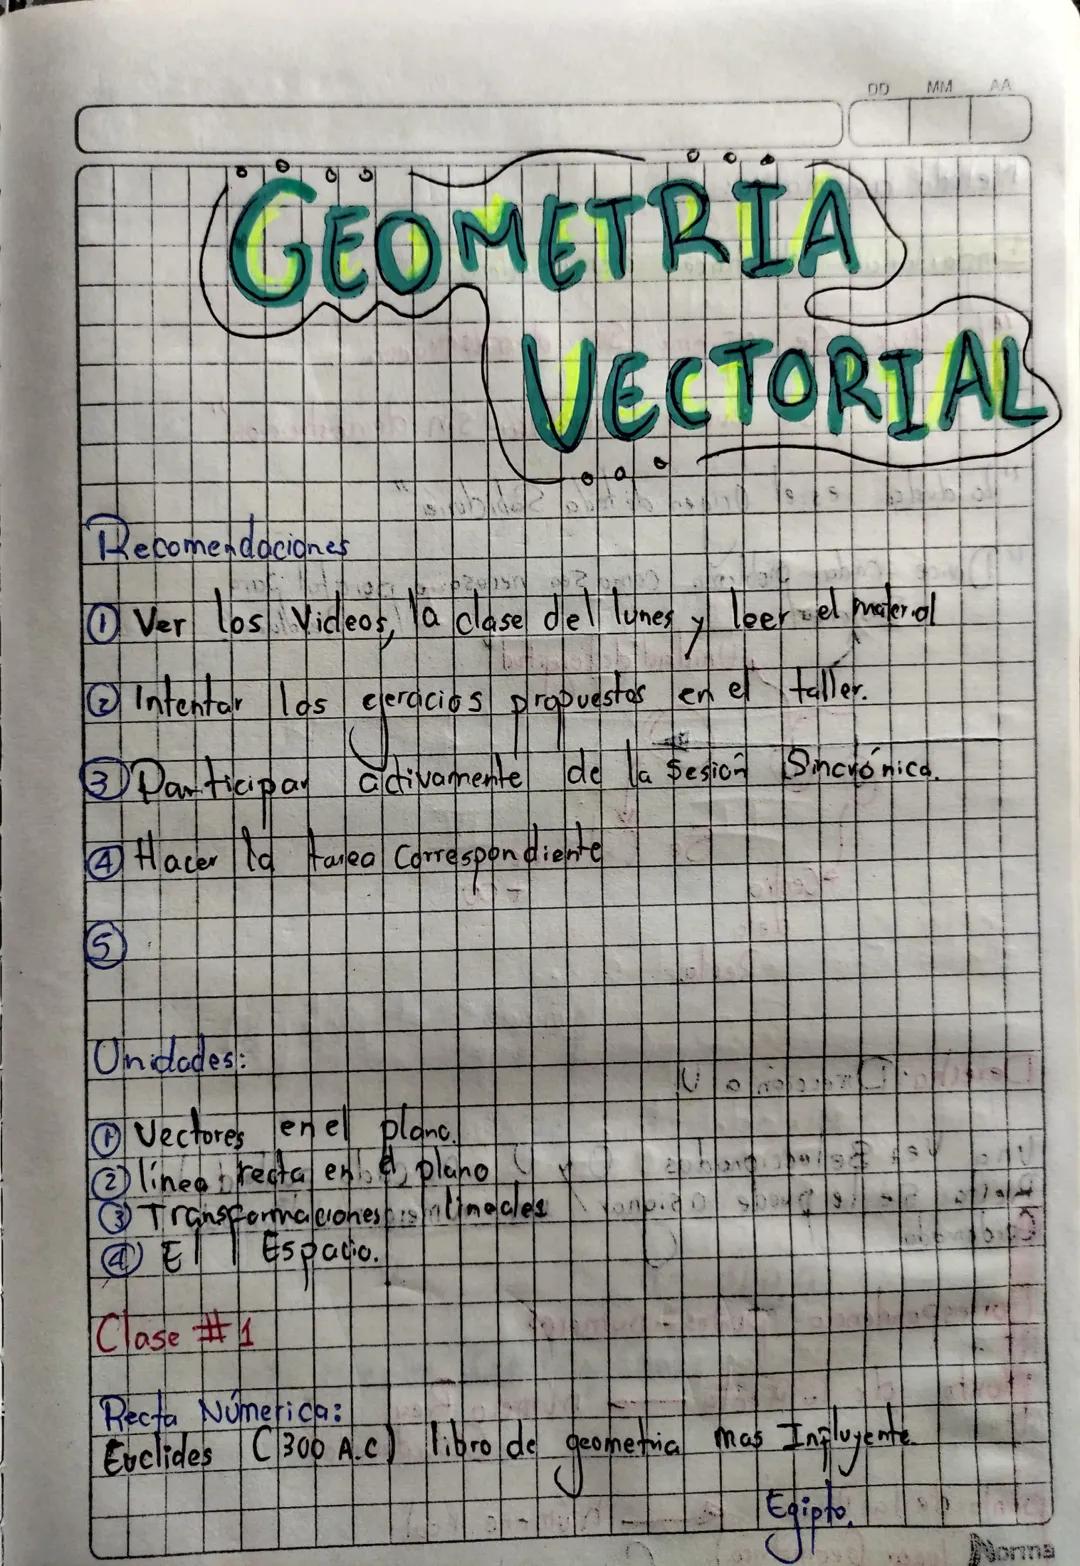 DD MM AA
GEOMETRIA
VECTORIAL
Recomendaciones
① Ver los Videos, la clase del lunes y leer el material
② Intentar los ejercicios propuestos en el taller.
③ Participar activamente de la Sesión Sincrónica.
④ Hacer la tarea Correspondiente
⑤
Unidades:
① Vectores en el plano.
② línea recta en el plano
③ Transformaciones lineales
④ El Espacio.
Clase #1
Recta Númerica:
Euclides (300 A.C) libro de geometria mas Influyente
Egipto.
Norma